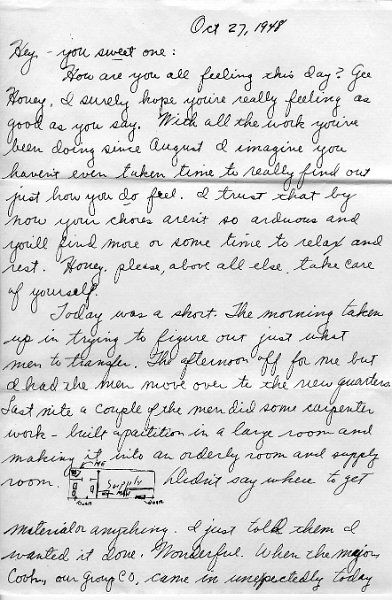 Oct 27, 1948
Hey, - you sweet one:
How are you all feeling this day? Gee
Honey, I surely hope you're really feeling as
good as you say. With all the work you've
been doing since August I imagine you
haven't even taken time to really find out
just how you do feel. I trust that by
now your chores aren't so arduous and
you'll find more or some time to relax and
rest. Honey, please, above all else, take care
of yourself.
Today was a short. The morning taken
up in trying to figure out just what
men to transfer. The afternoon off for me but
I had the men move over to the new quarters
Last nite a couple of the men did some carpenter
work - built a partition in a large room and
making it into an orderly room and supply
room. ME Supply Door Door Didn't say where to get
material or anything. I just told them I
wanted it done. Wonderful. When the major
our Group CO, came in unexpectedly today